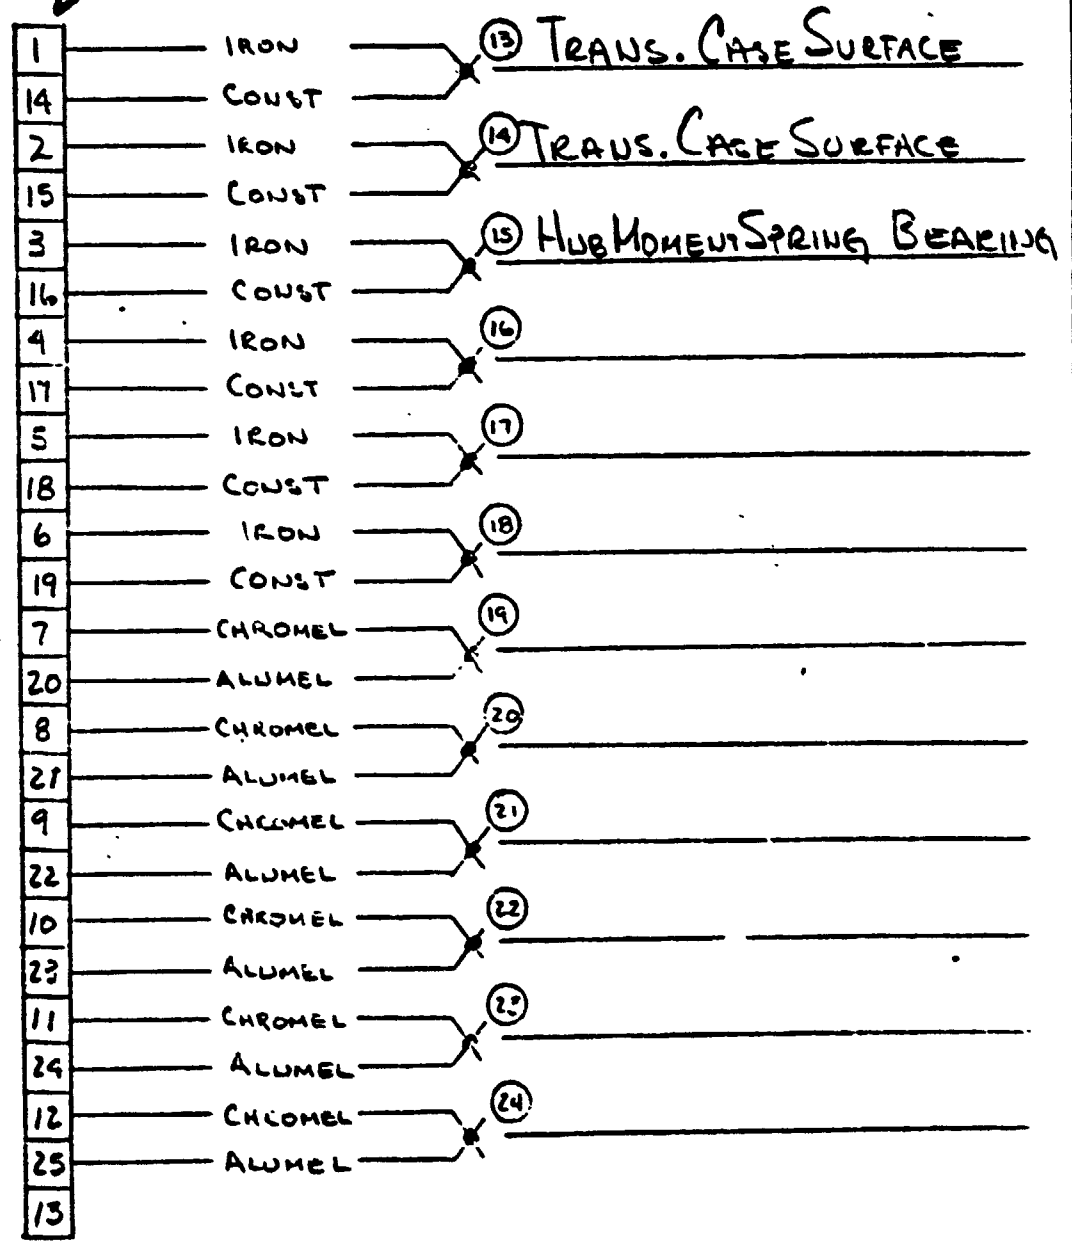 1 IRON 13 TRANS. CASE SURFACE
14 CONST
2 IRON 14 TRANS. CASE SURFACE
15 CONST
3 IRON 15 HUB MOMENT SPRING BEARING
16 CONST
4 IRON 16
17 CONST
5 IRON 17
18 CONST
6 IRON 18
19 CONST
7 CHROMEL 19
20 ALUMEL
8 CHROMEL 20
21 ALUMEL
9 CHROMEL 21
22 ALUMEL
10 CHROMEL 22
23 ALUMEL
11 CHROMEL 23
24 ALUMEL
12 CHROMEL 24
25 ALUMEL
13